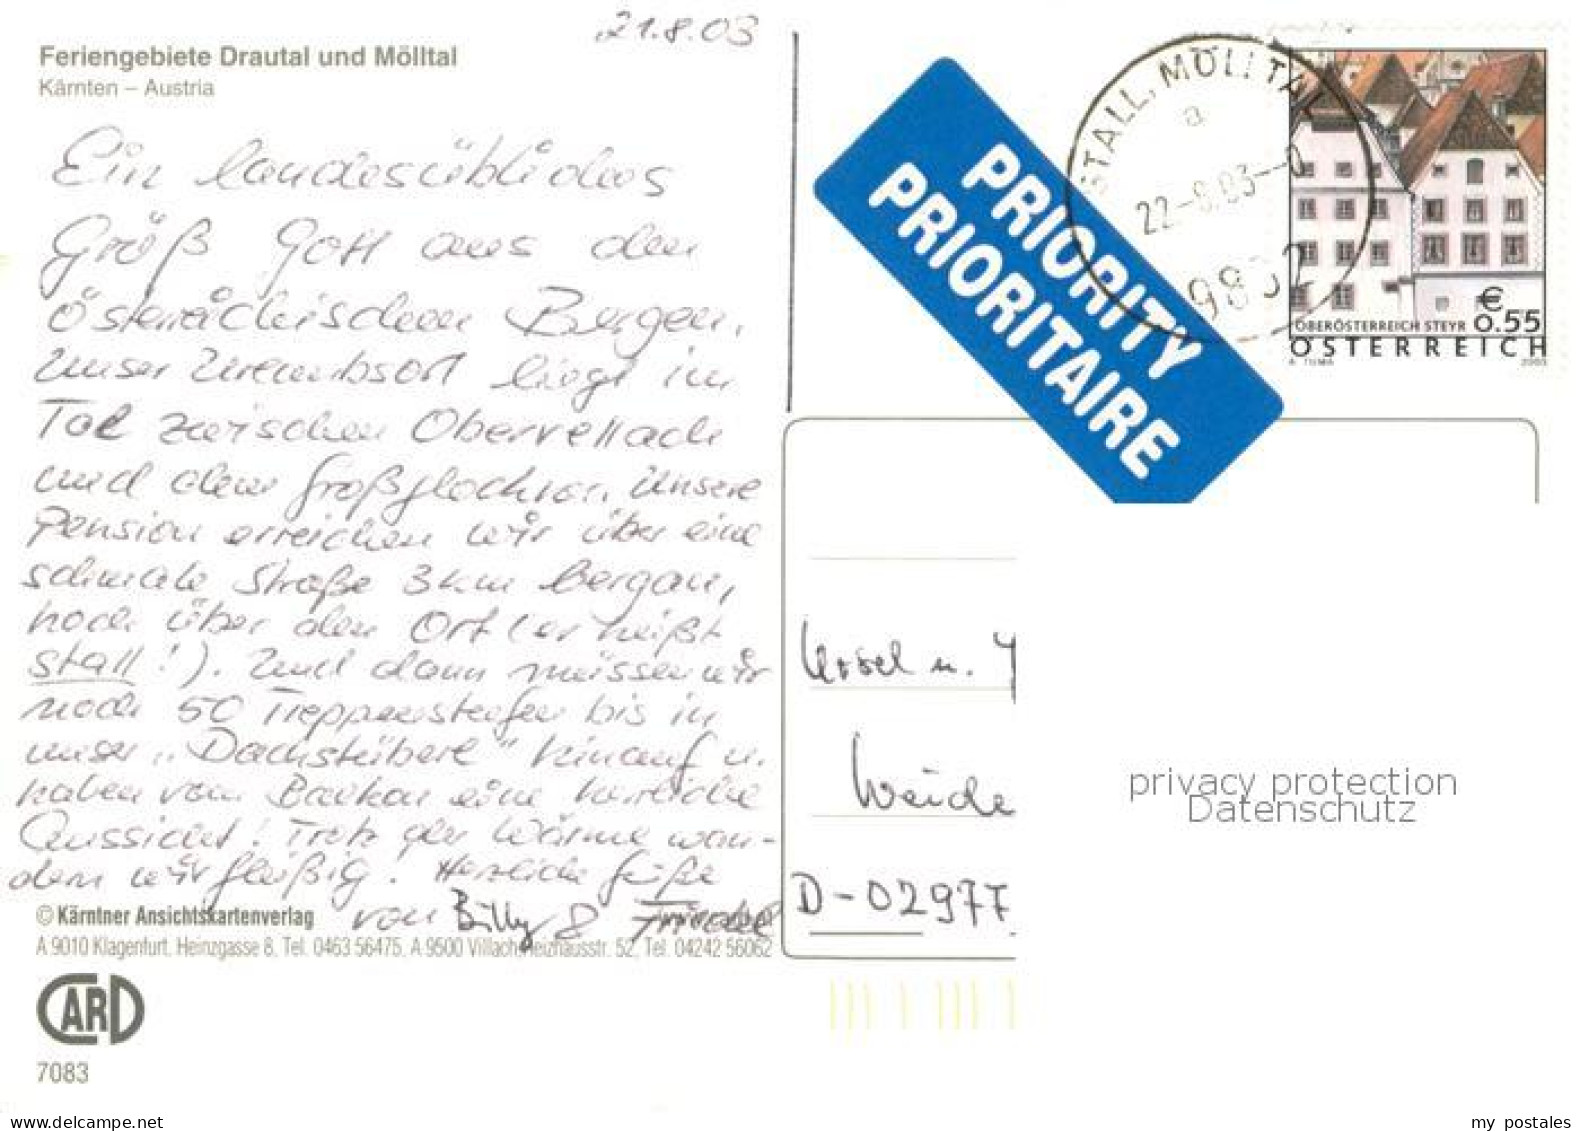 21.8.03
Feriengebiete Drautal und Mölltal
Kärnten – Austria
Ein landesübliches
Größ Gott aus den
österreichischen Bergen.
Unser Urlaubsort liegt im
Tal zwischen Obervellach
und dem Großglockner. Unsere
Pension erreichen wir über eine
schmale Straße 3 km bergan,
hoch über dem Ort (er heißt
Stall!). Und dann müssen wir
noch 50 Treppenstufen bis in
unser „Dachstüberl" hinauf u.
haben vom Balkon eine herrliche
Aussicht! Trotz der Wärme wan-
dern wir fleißig. Herzliche Grüße
von Billy & Friedel
© Kärntner Ansichtskartenverlag
A 9010 Klagenfurt, Heinzgasse 8, Tel. 0463 56475, A 9500 Villach, Heizhausstr. 52, Tel. 04242 56062
CARD
7083
PRIORITY
PRIORITAIRE
STALL, MÖLLTAL
a
22-8.03--0
9832
€
0.55
OBERÖSTERREICH STEYR
ÖSTERREICH
A. TUMA 2003
Ursel u.
Weide
D-02977
privacy protection
Datenschutz
www.delcampe.net
my_postales